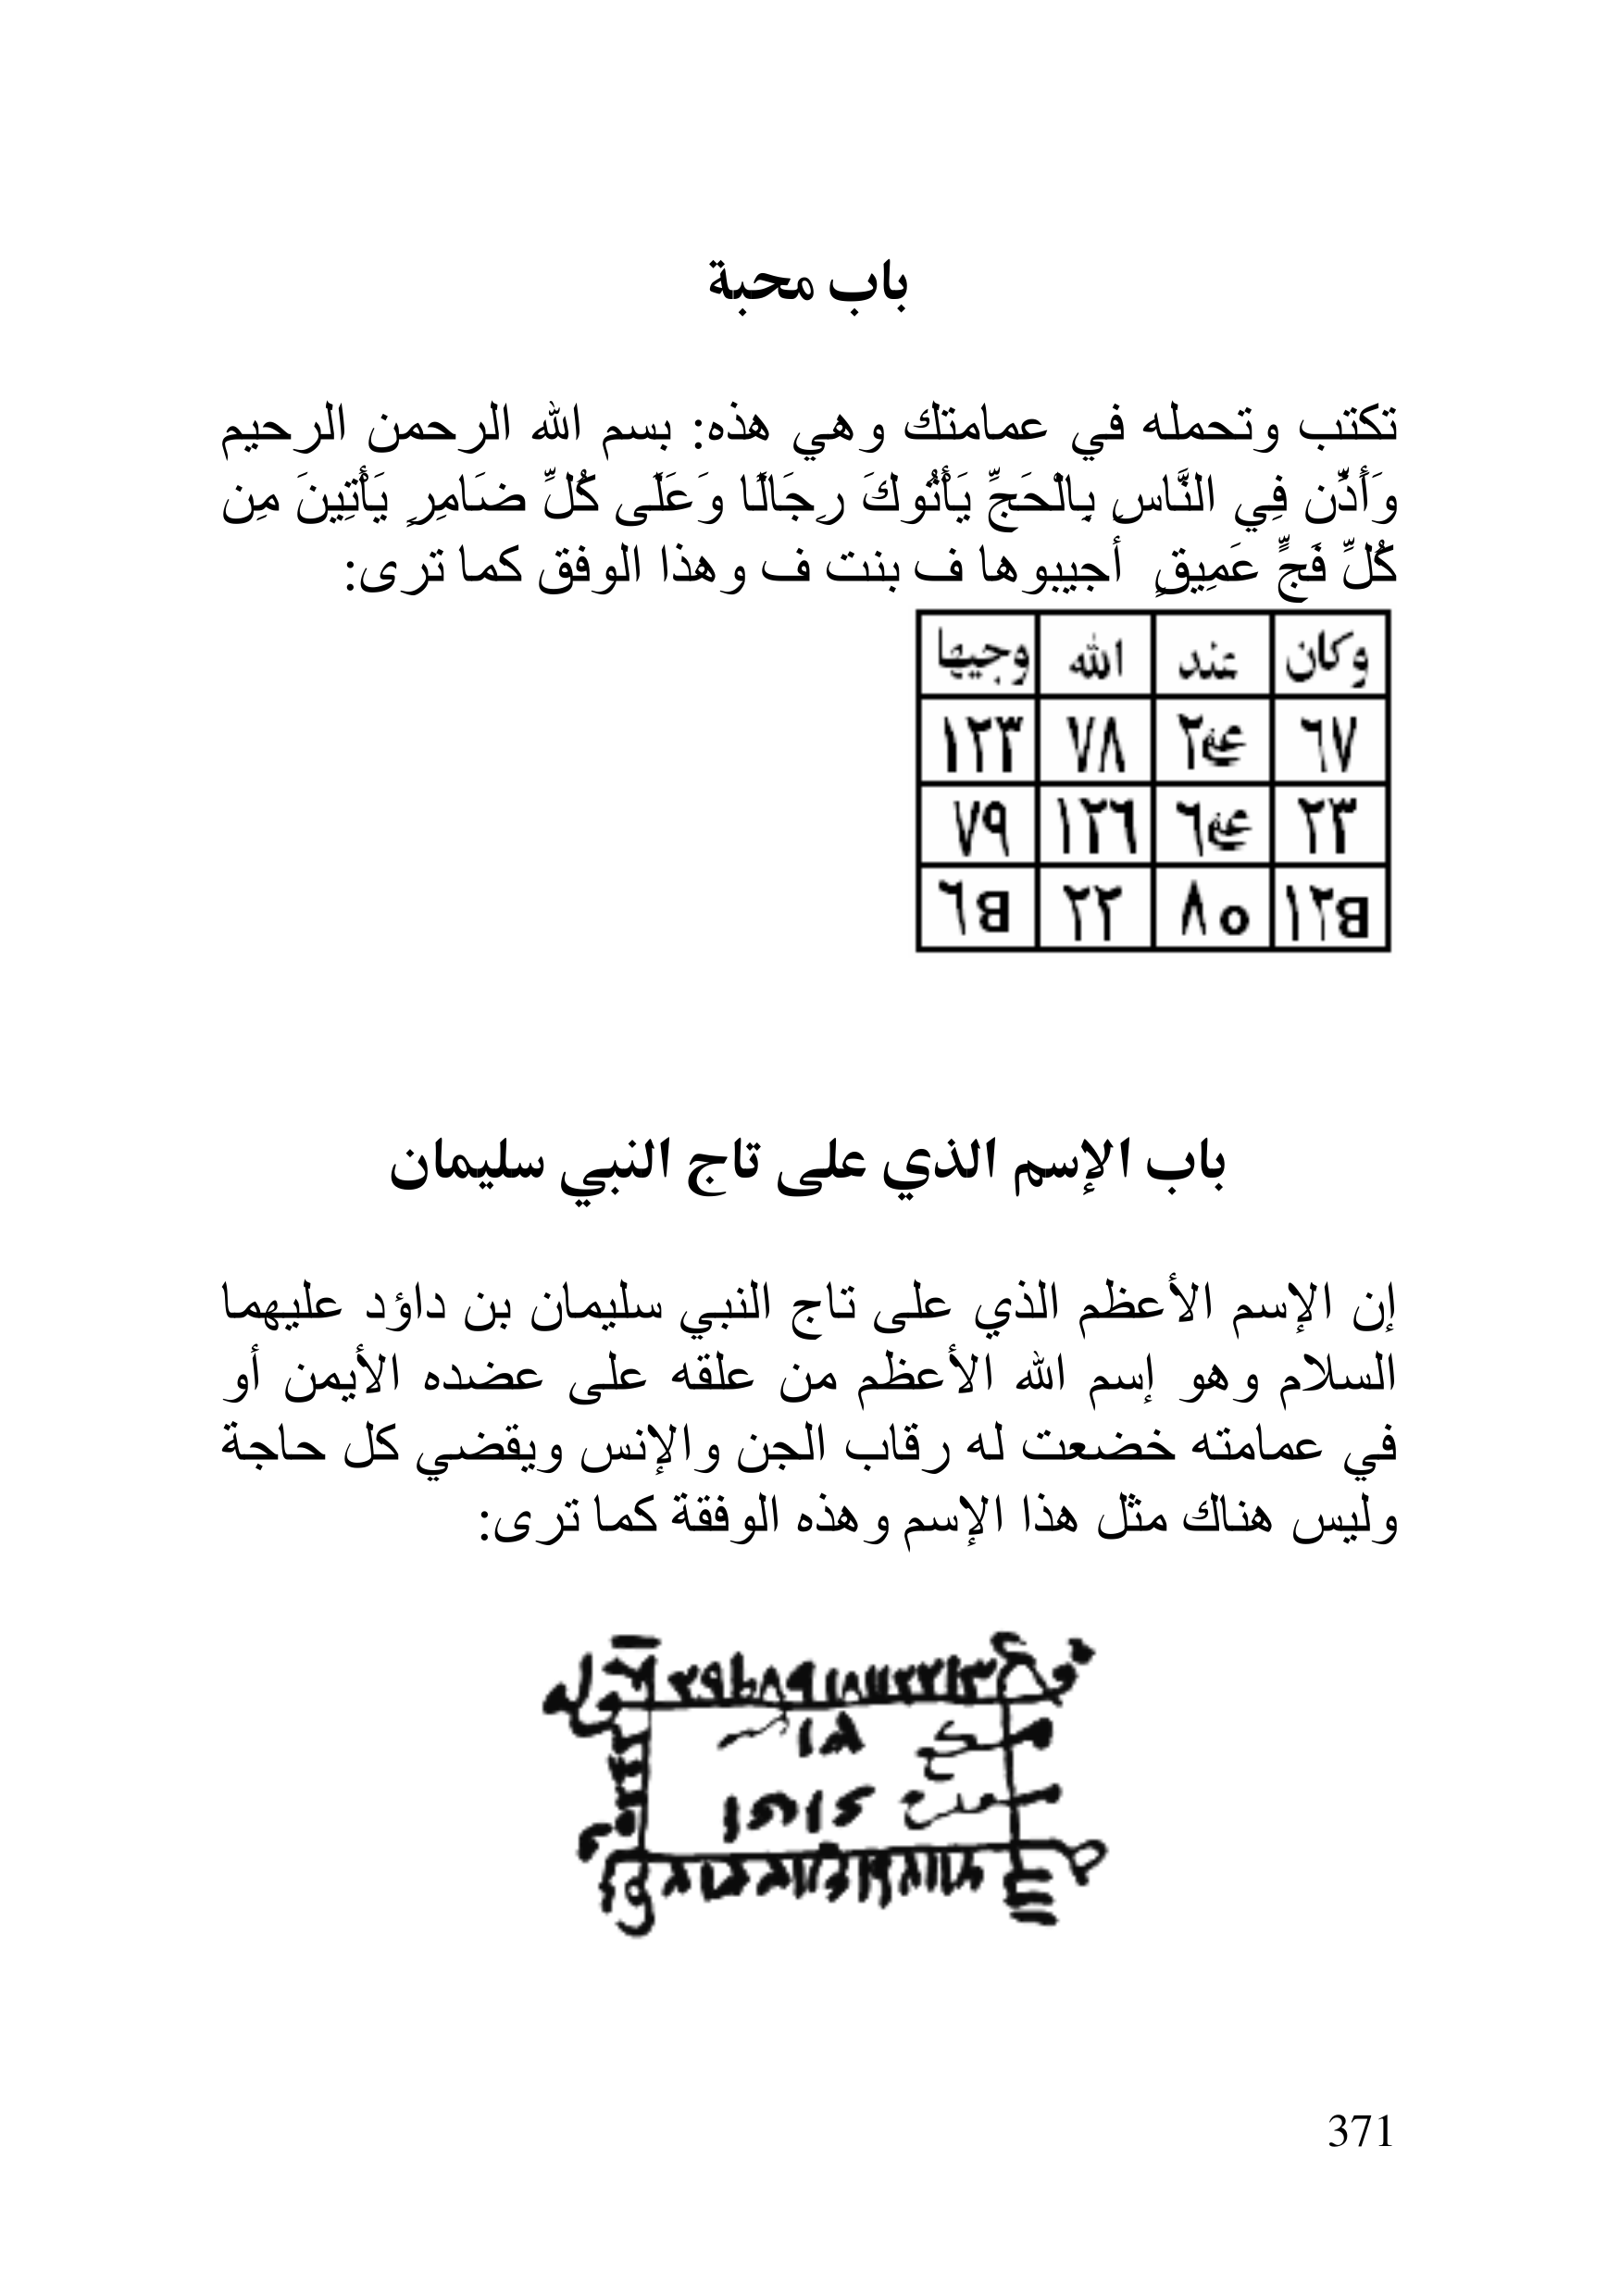 باب محبة
تكتب وتحمله في عمامتك وهي هذه: بسم الله الرحمن الرحيم
وَأَذِّن فِي النَّاسِ بِالْحَجِّ يَأْتُوكَ رِجَالًا وَعَلَى كُلِّ ضَامِرٍ يَأْتِينَ مِن
كُلِّ فَجٍّ عَمِيقٍ أجيبوها ف بنت ف وهذا الوفق كما ترى:
وكان عند الله وجيها
٦٧ ٧٨ ١٢٣
٢٣ ١٢٦ ٧٩
٢٢
باب الإسم الذي على تاج النبي سليمان
إن الإسم الأعظم الذي على تاج النبي سليمان بن داؤد عليهما
السلام وهو إسم الله الأعظم من علقه على عضده الأيمن أو
في عمامته خضعت له رقاب الجن والإنس ويقضي كل حاجة
وليس هناك مثل هذا الإسم وهذه الوفقة كما ترى:
371